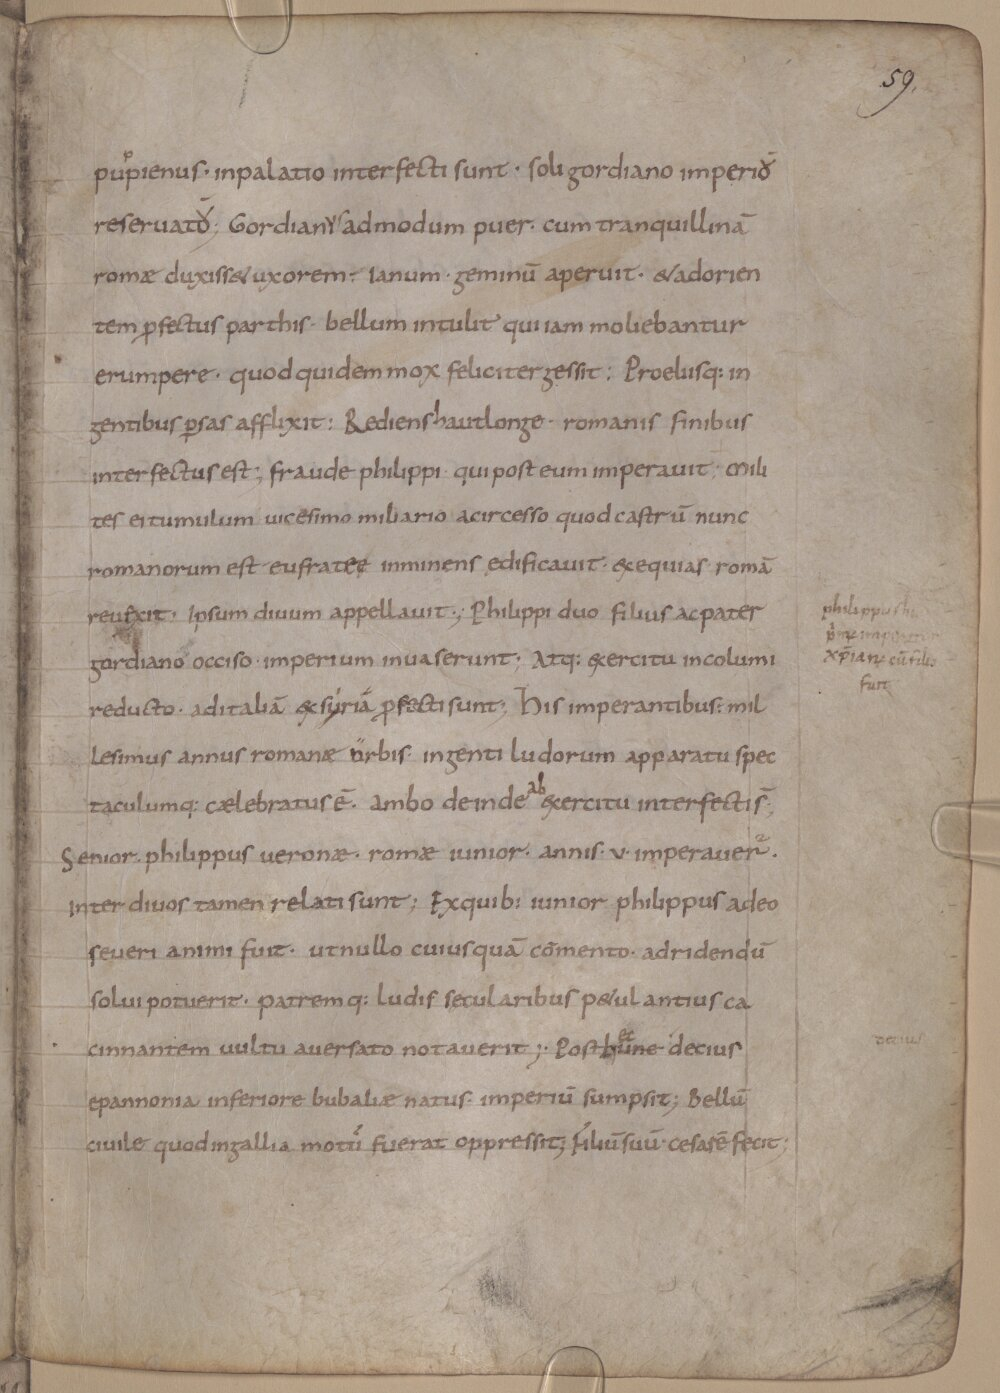 59.
pupienus· inpalatio interfecti sunt· soli gordiano imperiū
reseruatū; Gordianus admodum puer· cum tranquillinā
romæ duxiss& uxorem· Ianum· geminū aperuit· & adorien
tem ꝓfectus parthis· bellum intulit qui iam moliebantur
erumpere· quod quidem mox feliciter gessit; Proeliisq: in
gentibus ꝑsas afflixit: Rediens haut longe· romanis finibus
interfectus est; fraude philippi· qui post eum imperauit; Mili
tes ei tumulum uicesimo miliario a circesso quod castrū nunc
romanorum est eufratee inminens edificauit· exequias romā
reuexit· Ipsum diuum appellauit; Philippi duo filius ac pater
gordiano occiso· imperium inuaserunt; Atq: exercitu incolumi
reducto· ad italiā ex syriā ꝓfecti sunt; His imperantibus: mil
lesimus annus romanæ urbis· ingenti ludorum apparatu spec
taculumq: cælebratus ē· Ambo deinde ab exercitu interfecti s̄;
Senior philippus ueronæ· romæ iunior· annis· v· imperauer·
Inter diuos tamen relati sunt; Ex quib: iunior philippus adeo
seueri animi fuit· ut nullo cuiusquā cōmento· ad ridendū
solui potuerit· patremq: ludis secularibus p&ulantius ca
cinnantem uultu auersato notauerit; Post hunc decius
e pannonia inferiore bubaliæ natus· imperiū sumpsit; Bellū
ciuile quod in gallia motū fuerat oppressit; Filiū suū cesarē fecit;
philippus
imperator
xp̄ian cū filio
fuit
decius